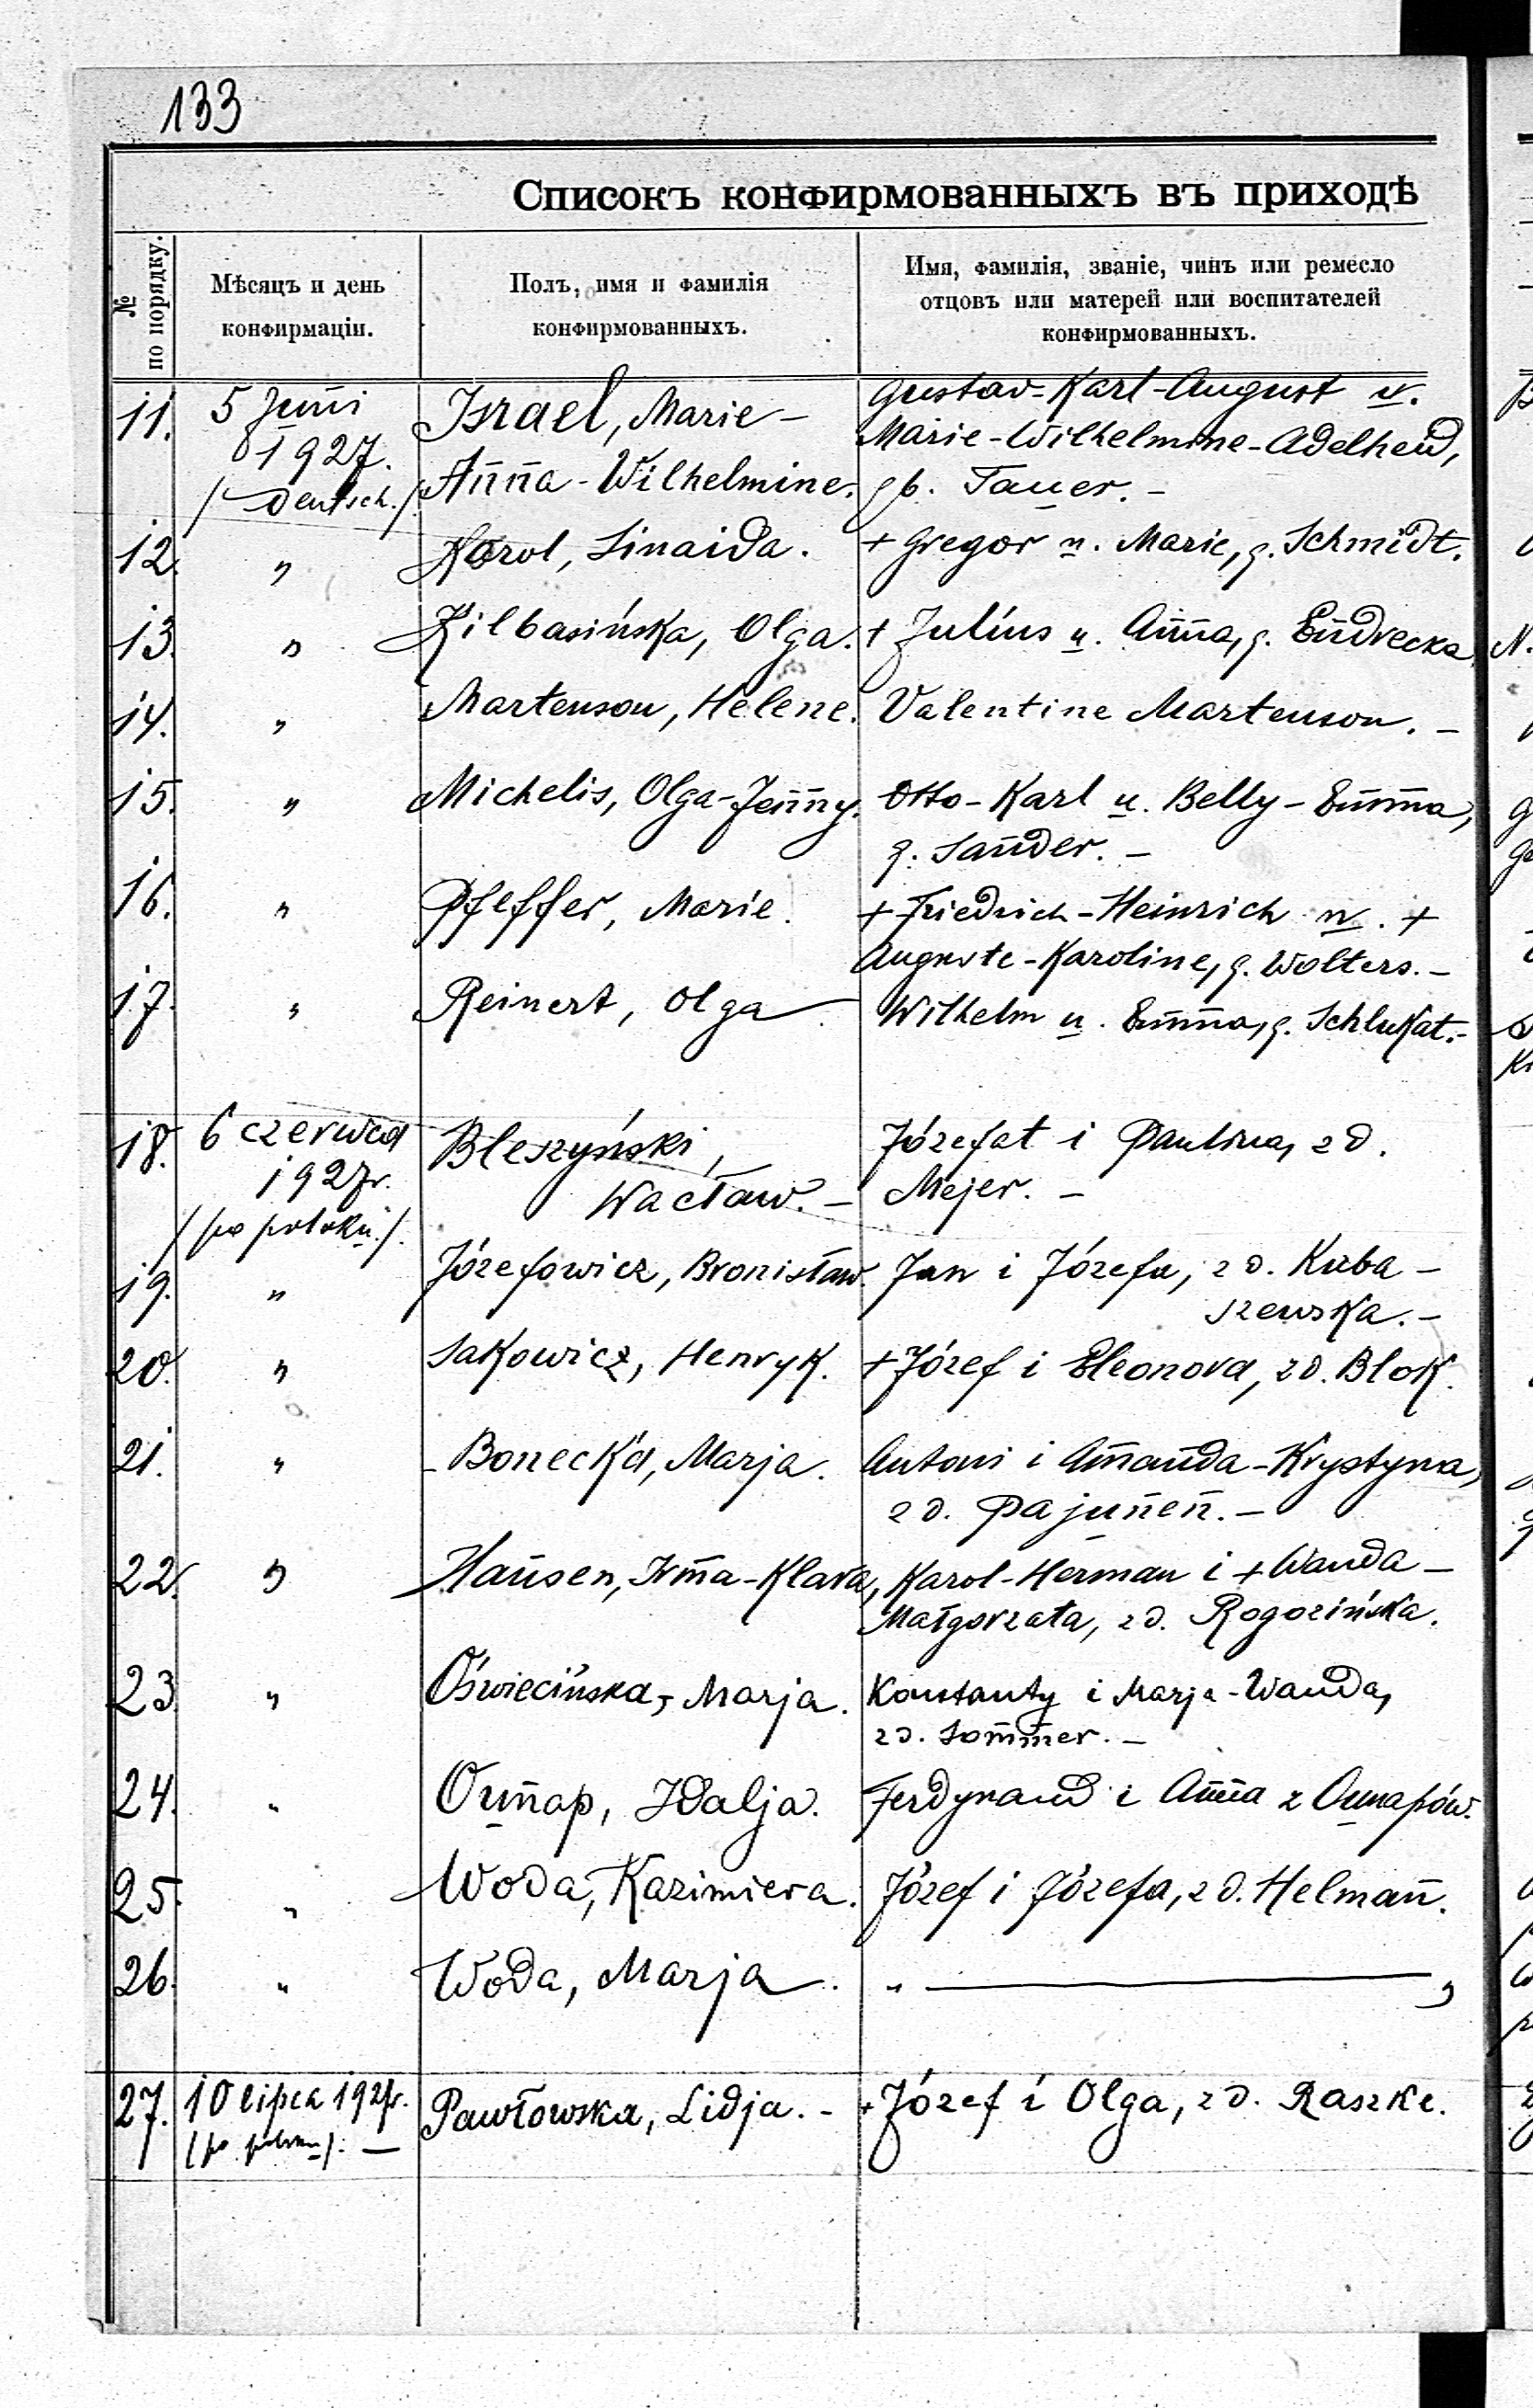 133
Списокъ конфирмованныхъ въ приходѣ
№ по порядку.
Мѣсяцъ и день
конфирмаціи.
Полъ, имя и фамилія
конфирмованныхъ.
Имя, фамилія, званіе, чинъ или ремесло
отцовъ или матерей или воспитателей
конфирмованныхъ.
11. 5 Juni Israel, Marie- Gustav-Karl-August u.
1927. Marie-Wilhelmine-Adelheid,
/Deutsch./ Anna-Wilhelmine. gb. Tauer. -
12. " Korol, Sinaida. + Gregor u. Marie, g. Schmidt.
13. " Kilbasińska, Olga. + Julius u. Anna, g. Endrecka
14. " Martenson, Helene. Valentine Martenson. -
15. " Michelis, Olga-Jenny. Otto-Karl u. Belly-Emma,
g. Sander. -
16. " Pfeffer, Marie. + Friedrich-Heinrich u. +
Auguste-Karoline, g. Wolters. -
17. " Reinert, Olga. Wilhelm u. Emma, g. Schlukat. -
18. 6 czerwca Bleszyński, Józefat i Paulina, zd.
1927r. Wacław. - Mejer. -
/po polsku/.
19. " Józefowicz, Bronisław. Jan i Józefa, zd. Kuba-
szewska. -
20. " Sakowicz, Henryk. + Józef i Eleonora, zd. Blok.
21. " Bonecka, Marja. Antoni i Amanda-Krystyna,
zd. Pajunen. -
22. " Hansen, Irma-Klara, Karol-Herman i + Wanda-
Małgorzata, zd. Rogozińska.
23. " Oświecińska, Marja. Konstanty i Marja-Wanda,
zd. Sommer. -
24. " Ounap, Idalja. Ferdynand i Anna z Ounapów.
25. " Woda, Kazimiera. Józef i Józefa, zd. Helman.
26. " Woda, Marja. " — "
27. 10 lipca 1927r. Pawłowska, Lidja. - + Józef i Olga, zd. Raszke.
(po polsku). -